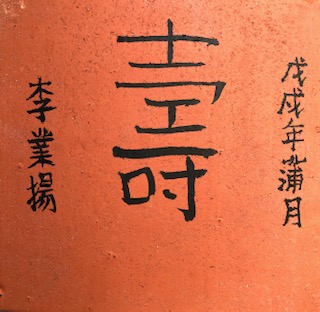 戊戌年蒲月
壽
李業揚